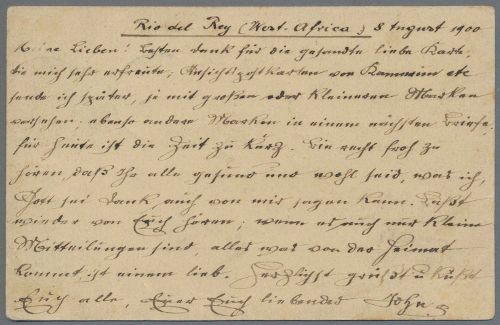 Rio del Rey (West-Africa) 8 August 1900
Meine Lieben! Besten Dank für die gesandte liebe Karte,
die mich sehr erfreute; Ansichtspostkarten von Kamerun etc
sende ich später, je mit großen oder kleineren Marken
versehen. ebenso andere Marken in einem nächsten Briefe,
für heute ist die Zeit zu kurz. Bin recht froh zu
hören, daß Ihr alle gesund und wohl seid, was ich,
Gott sei Dank, auch von mir sagen kann. Laßt
wieder von Euch hören; wenn es auch nur kleine
Mitteilungen sind alles was von der Heimat
kommt, ist einem lieb. Herzlichst grüßt u küßt
Euch alle, Euer Euch liebender John